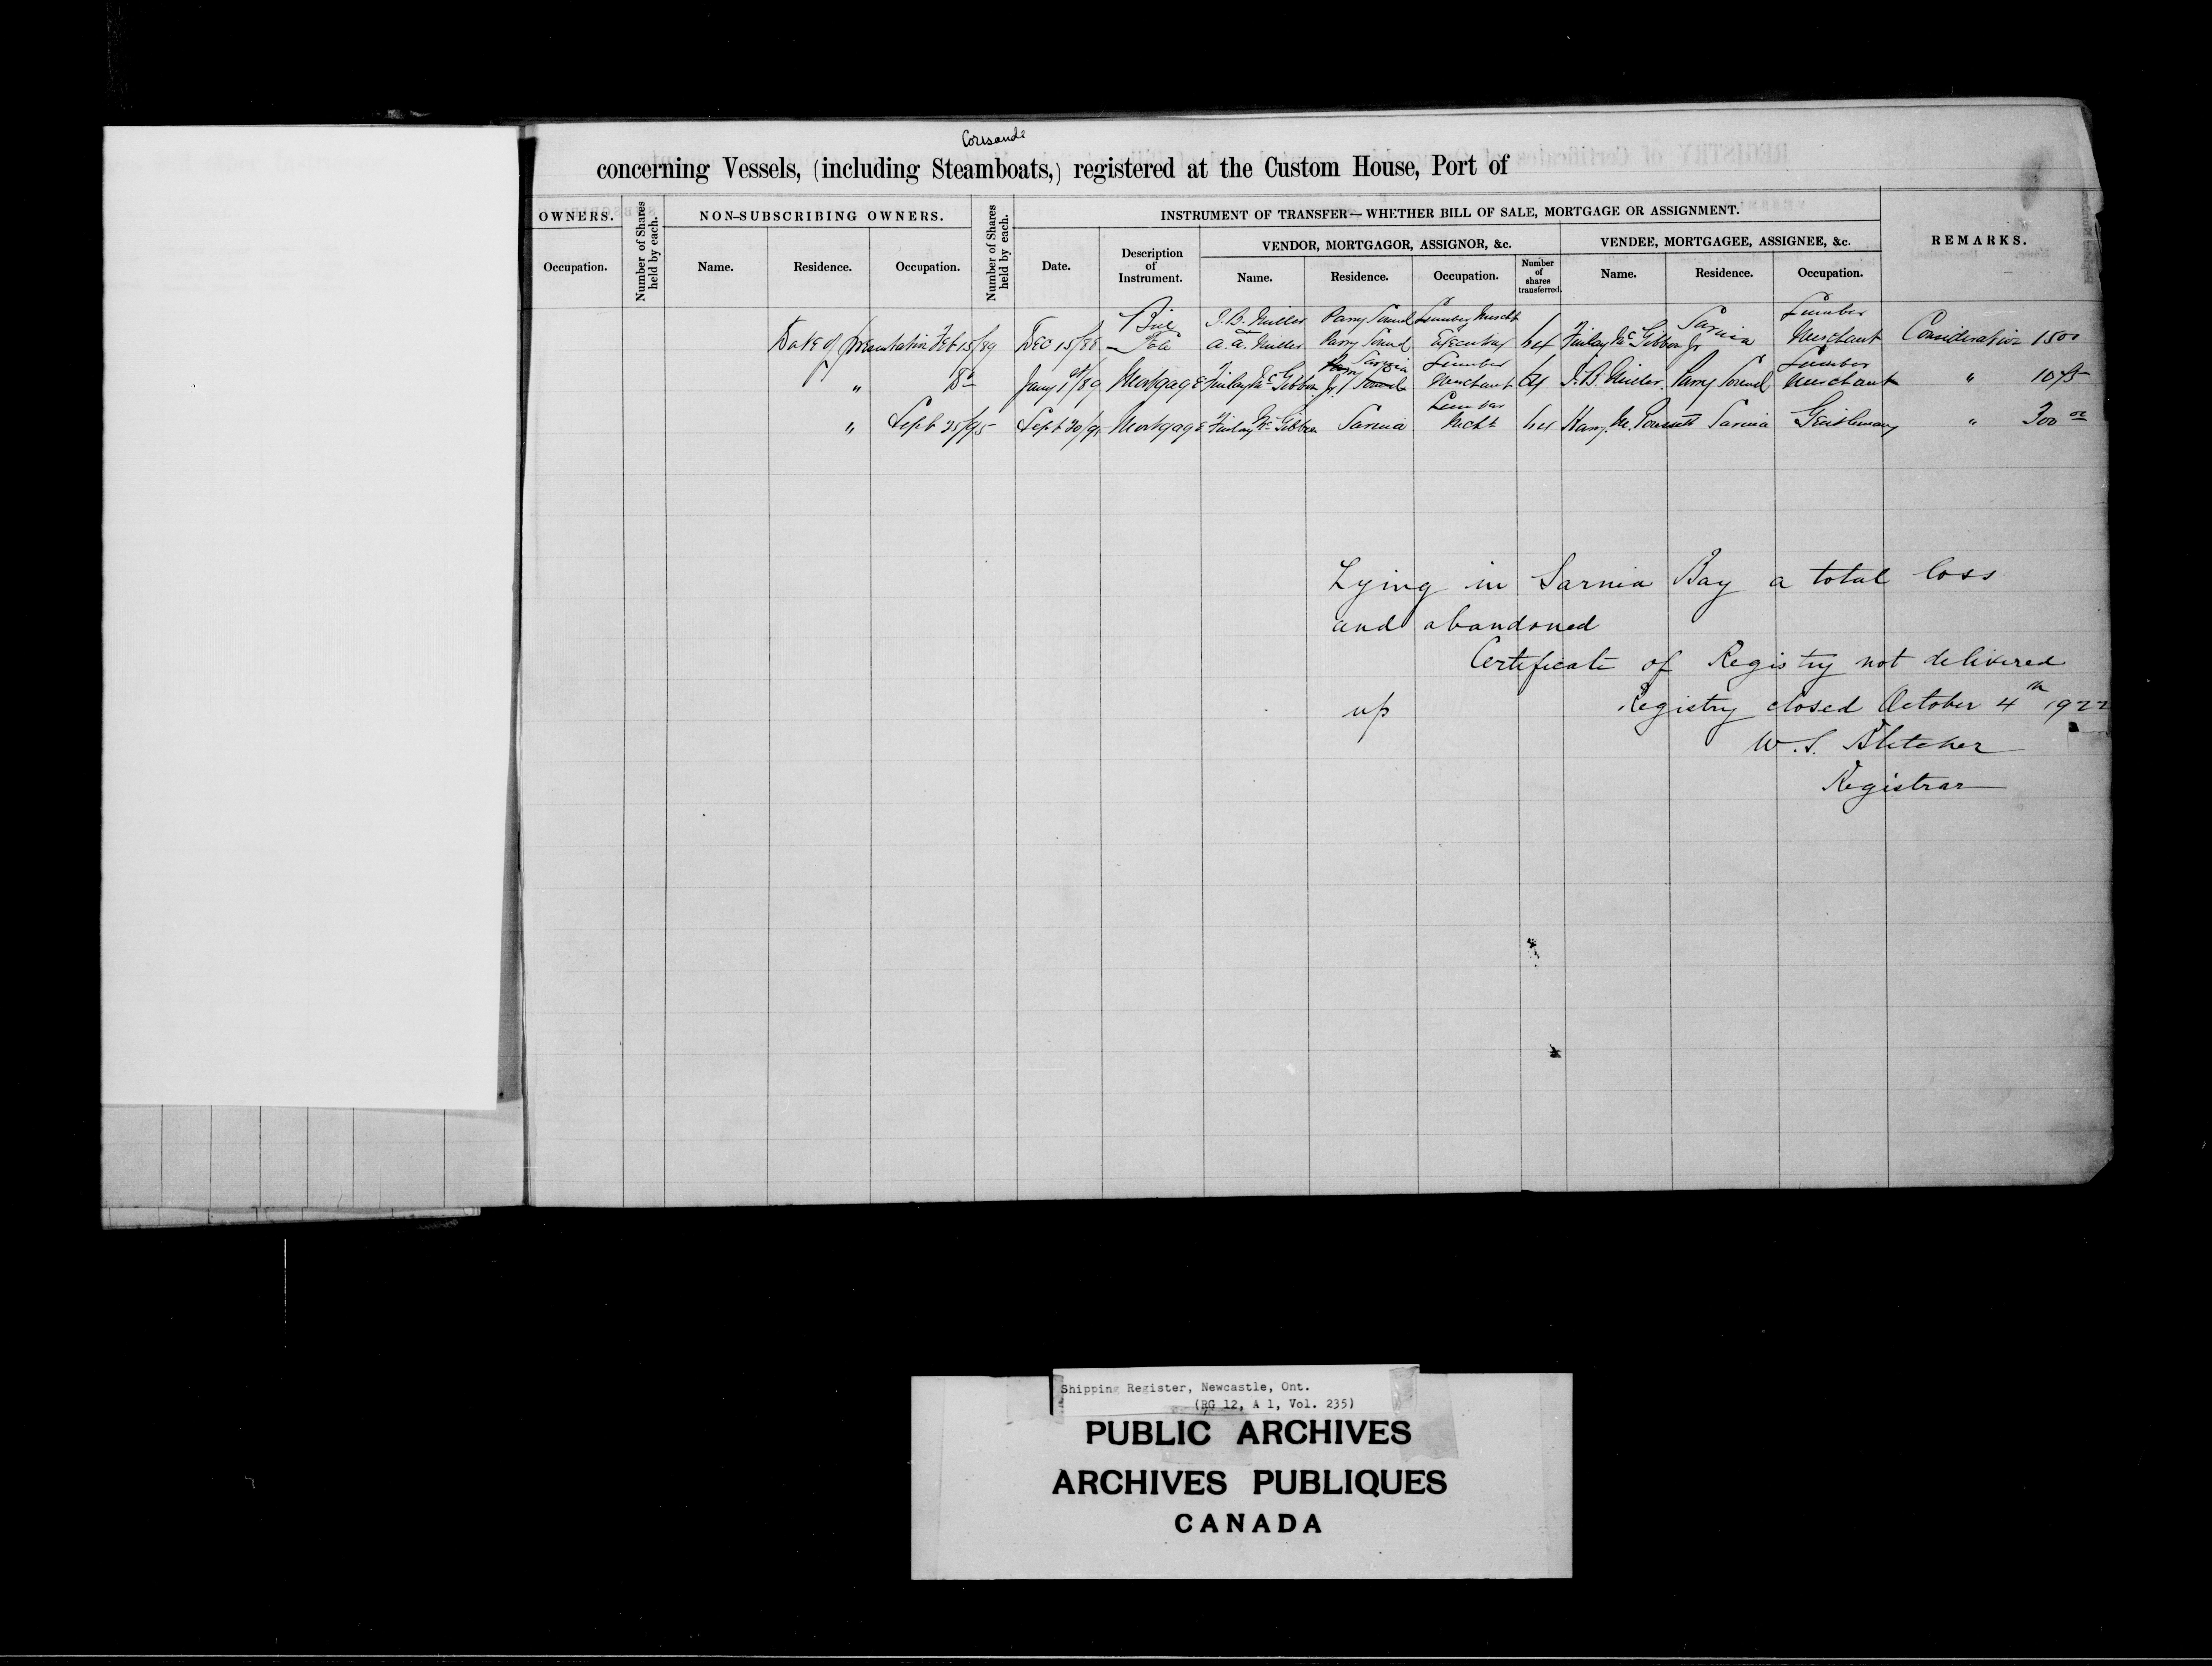 Corisande
concerning Vessels, (including Steamboats,) registered at the Custom House, Port of
OWNERS.
Number of Shares held by each.
NON-SUBSCRIBING OWNERS.
Number of Shares held by each.
INSTRUMENT OF TRANSFER—WHETHER BILL OF SALE, MORTGAGE OR ASSIGNMENT.
VENDOR, MORTGAGOR, ASSIGNOR, &c.
VENDEE, MORTGAGEE, ASSIGNEE, &c.
REMARKS.
Occupation. Name. Residence. Occupation. Date. Description of Instrument. Name. Residence. Occupation. Number of shares transferred. Name. Residence. Occupation.
J. B. Miller Parry Sound Lumber Mercht Sarnia Lumber
Date of presentation Feb 15/89 Dec 15/88 Bill Sale A. A. Miller Parry Sound Executrix 64 Finlay McGibbon Jr Merchant Consideration 1500
Sarnia Lumber Lumber
" Do Jany 1st/89 Mortgage Finlay McGibbon Jr Parry Sound Merchant 64 J. B. Miller Parry Sound Merchant " 1075
Lumber
" Sept 25/95 Sept 20/95 Mortgage Finlay McGibbon Sarnia Mercht 64 Harry M. Poussett Sarnia Gentleman " 300 00
Lying in Sarnia Bay a total loss
and abandoned
Certificate of Registry not delivered
up Registry closed October 4th 1922
W. S.
Registrar
Shipping Register, Newcastle, Ont.
(RG 12, A 1, Vol. 235)
PUBLIC ARCHIVES
ARCHIVES PUBLIQUES
CANADA